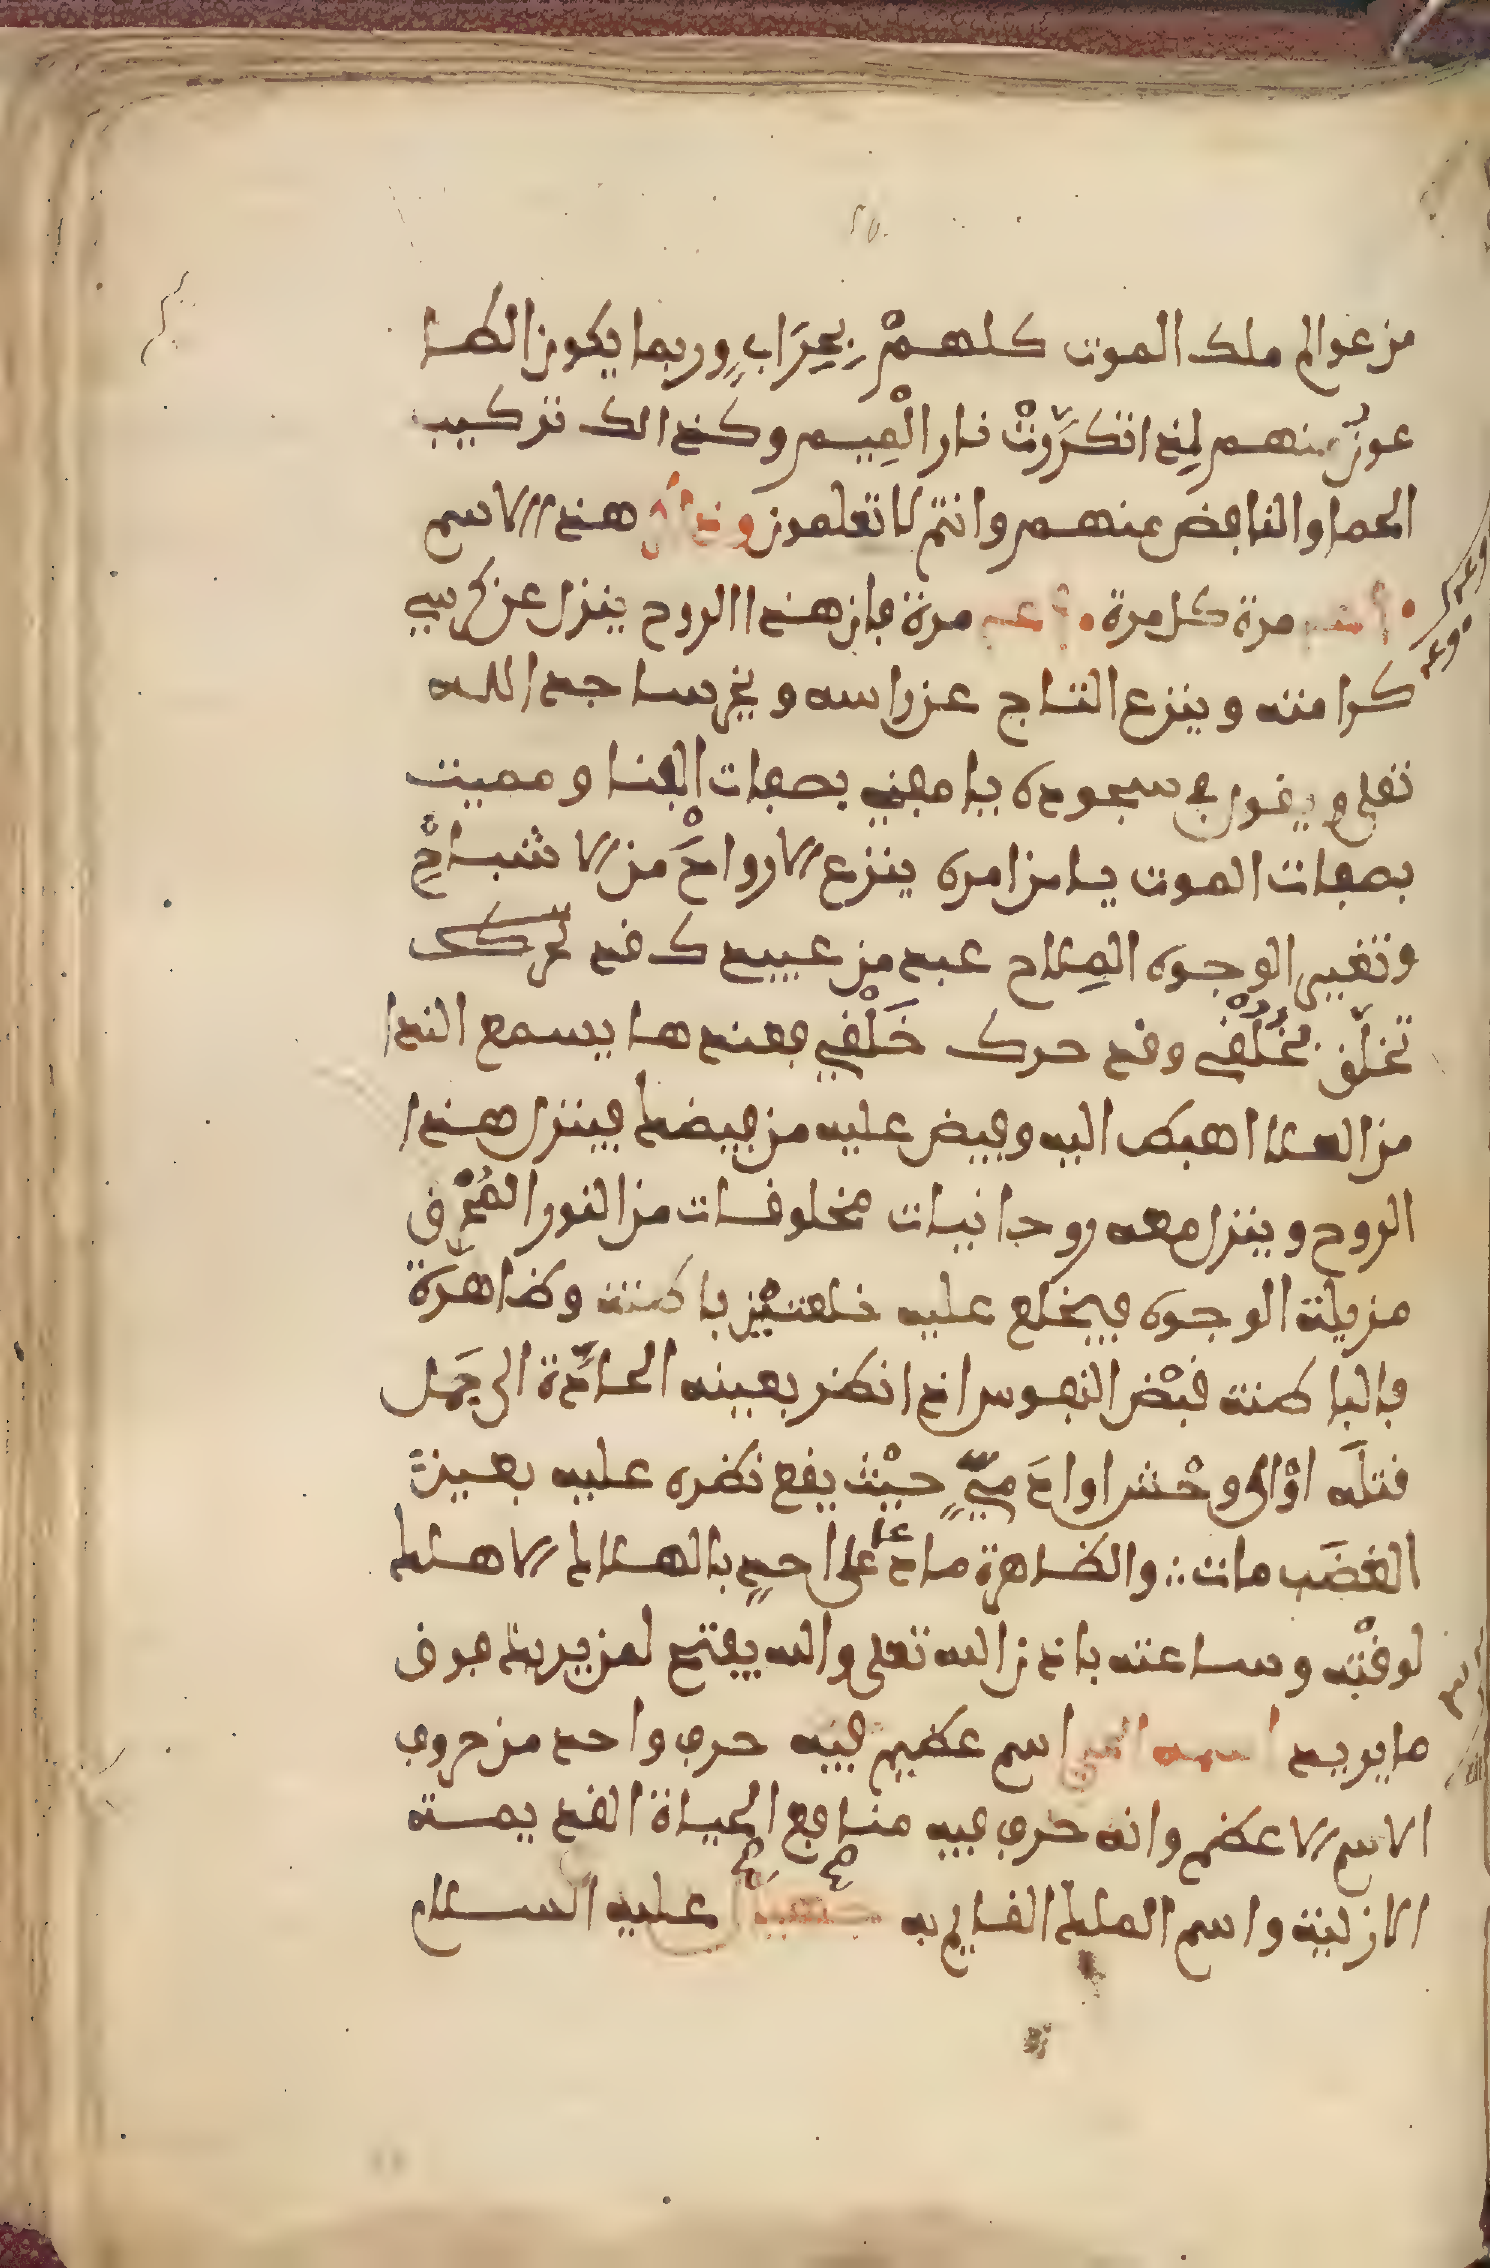 من عوالم ملك الموت كلهم بحِرَابٍ وربما يكون الطا
عونُ منهم لمذ انكرَّوتْ نار الْفِيم وكذالك تركيب
الحما والنافض منهم وانتم لا تعلمون هذا الاسم
مرة كل مرة مرة فان هذا الروح ينزل عن كرسي
كرامته وينزع التاج عن راسه ويخر ساجد الله
تعلى ويقول في سجوده يا مفني بصفات الفنا ومميت
بصفات الموت يا من امره ينزع الارواحَ من الاشباحِ
وتغيير الوجوه المِلاح عبد من عبيدك قد تحرك
تخلّق بخُلُقي وقد حرك خَلْقي فعندها يسمع الندا
من العلا اهبط اليه وفيض عليه من فيضك فينزل هذا
الروح وينزل معه روحانيات مخلوقات من النور المُحْرق
مزيلة الوجوه فيخلع عليه خلعتيْن باطنة وظاهرة
فالباطنة قبْض النفوس اذا نظر بعينه الحادّة الى جَمل
قتلَه اوْ الى وحْش اوا حَ ميّ حيْث يقع نظره عليه بعين
الغضَب مات والظاهرة ما دعا على احدٍ بالهلاك الا هلك
لوقْته وساعته باذن الله تعلى والله يفتح لمن يريد فوق
ما يريد اسمه الحي اسم عظيم فيه حرف واحد من حروف
الاسم الاعظم وانه حرف فيه منافع الحياة القديمة
الازلية واسم الملك القايم به عليه السلام